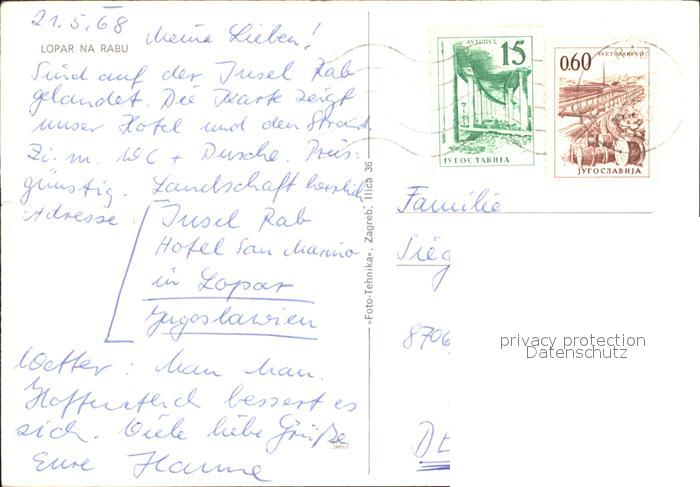 21.5.68
LOPAR NA RABU
Meine Lieben!
Sind auf der Insel Rab
gelandet. Die Karte zeigt
unser Hotel und den Strand.
Zi. m. WC + Dusche. Preis-
günstig. Landschaft herrlich
Adresse:
Insel Rab
Hotel San Marino
in Lopar
Jugoslawien
Wetter: Mau Mau.
Hoffentlich bessert es
sich. Viele liebe Grüße
Eure Hanne
»Foto-Tehnika«, Zagreb, Ilica 36
АУТОПУТ
15
ЈУГОСЛАВИЈА
SVETOZAREVO
0.60
ЈУГОСЛАВИЈА
Familie
Sieg
8706
DE
privacy protection
Datenschutz